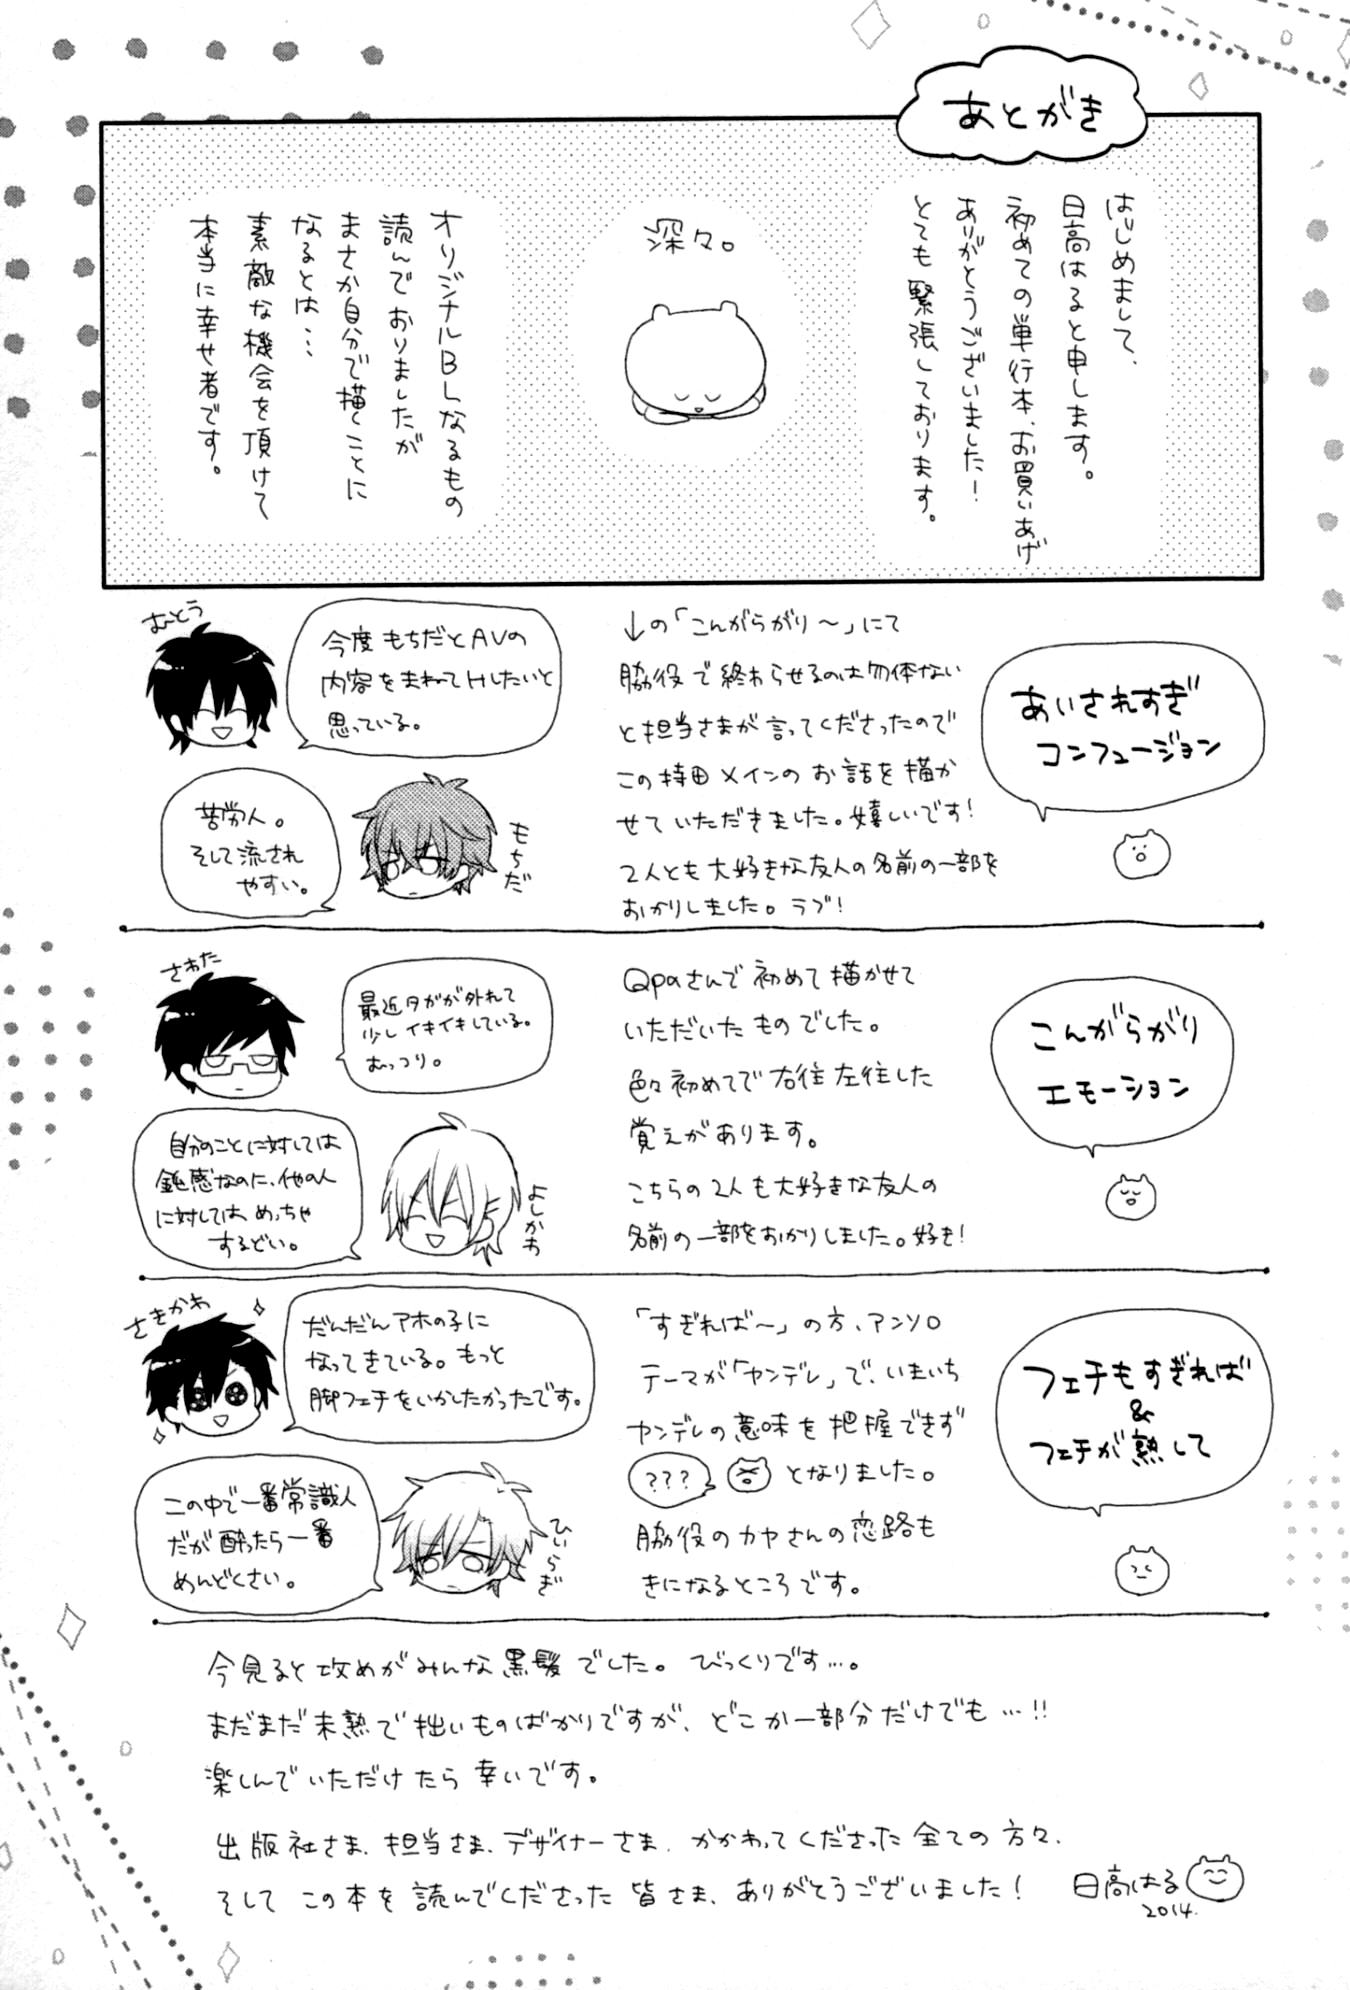 あとがき
はじめまして、
日高はると申します。
初めての単行本、お買いあげ
ありがとうございました!
とても緊張しております。
深々。
オリジナルBLなるもの
読んでおりましたが
まさか自分で描くことに
なるとは…
素敵な機会を頂けて
本当に幸せ者です。
あいされすぎ
コンフュージョン
↓の「こんがらがり〜」にて
脇役で終わらせるのは勿体ない
と担当さまが言ってくださったので
この持田メインのお話を描か
せていただきました。嬉しいです!
2人とも大好きな友人の名前の一部を
おかりしました。ラブ!
むとう
今度もちだとAVの
内容をまねてHしたいと
思っている。
もちだ
苦労人。
そして流され
やすい。
こんがらがり
エモーション
Qpaさんで初めて描かせて
いただいたものでした。
色々初めてで右往左往した
覚えがあります。
こちらの2人も大好きな友人の
名前の一部をおかりしました。好き!
さわた
最近タガが外れて
少しイキイキしている。
むっつり。
よしかわ
自分のことに対しては
鈍感なのに、他の人
に対しては、めっちゃ
するどい。
フェチもすぎれば
&
フェチが熟して
「すぎれば〜」の方、アンソロ
テーマが「ヤンデレ」で、いまいち
ヤンデレの意味を把握できず
??? となりました。
脇役のカヤさんの恋路も
きになるところです。
さきかわ
だんだんアホの子に
なってきている。もっと
脚フェチをいかしたかったです。
ひいらぎ
この中で一番常識人
だが酔ったら一番
めんどくさい。
今見ると攻めがみんな黒髪でした。びっくりです…。
まだまだ未熟で拙いものばかりですが、どこか一部分だけでも…!!
楽しんでいただけたら幸いです。
出版社さま、担当さま、デザイナーさま、かかわってくださった全ての方々、
そしてこの本を読んでくださった皆さま、ありがとうございました!
日高はる
2014.